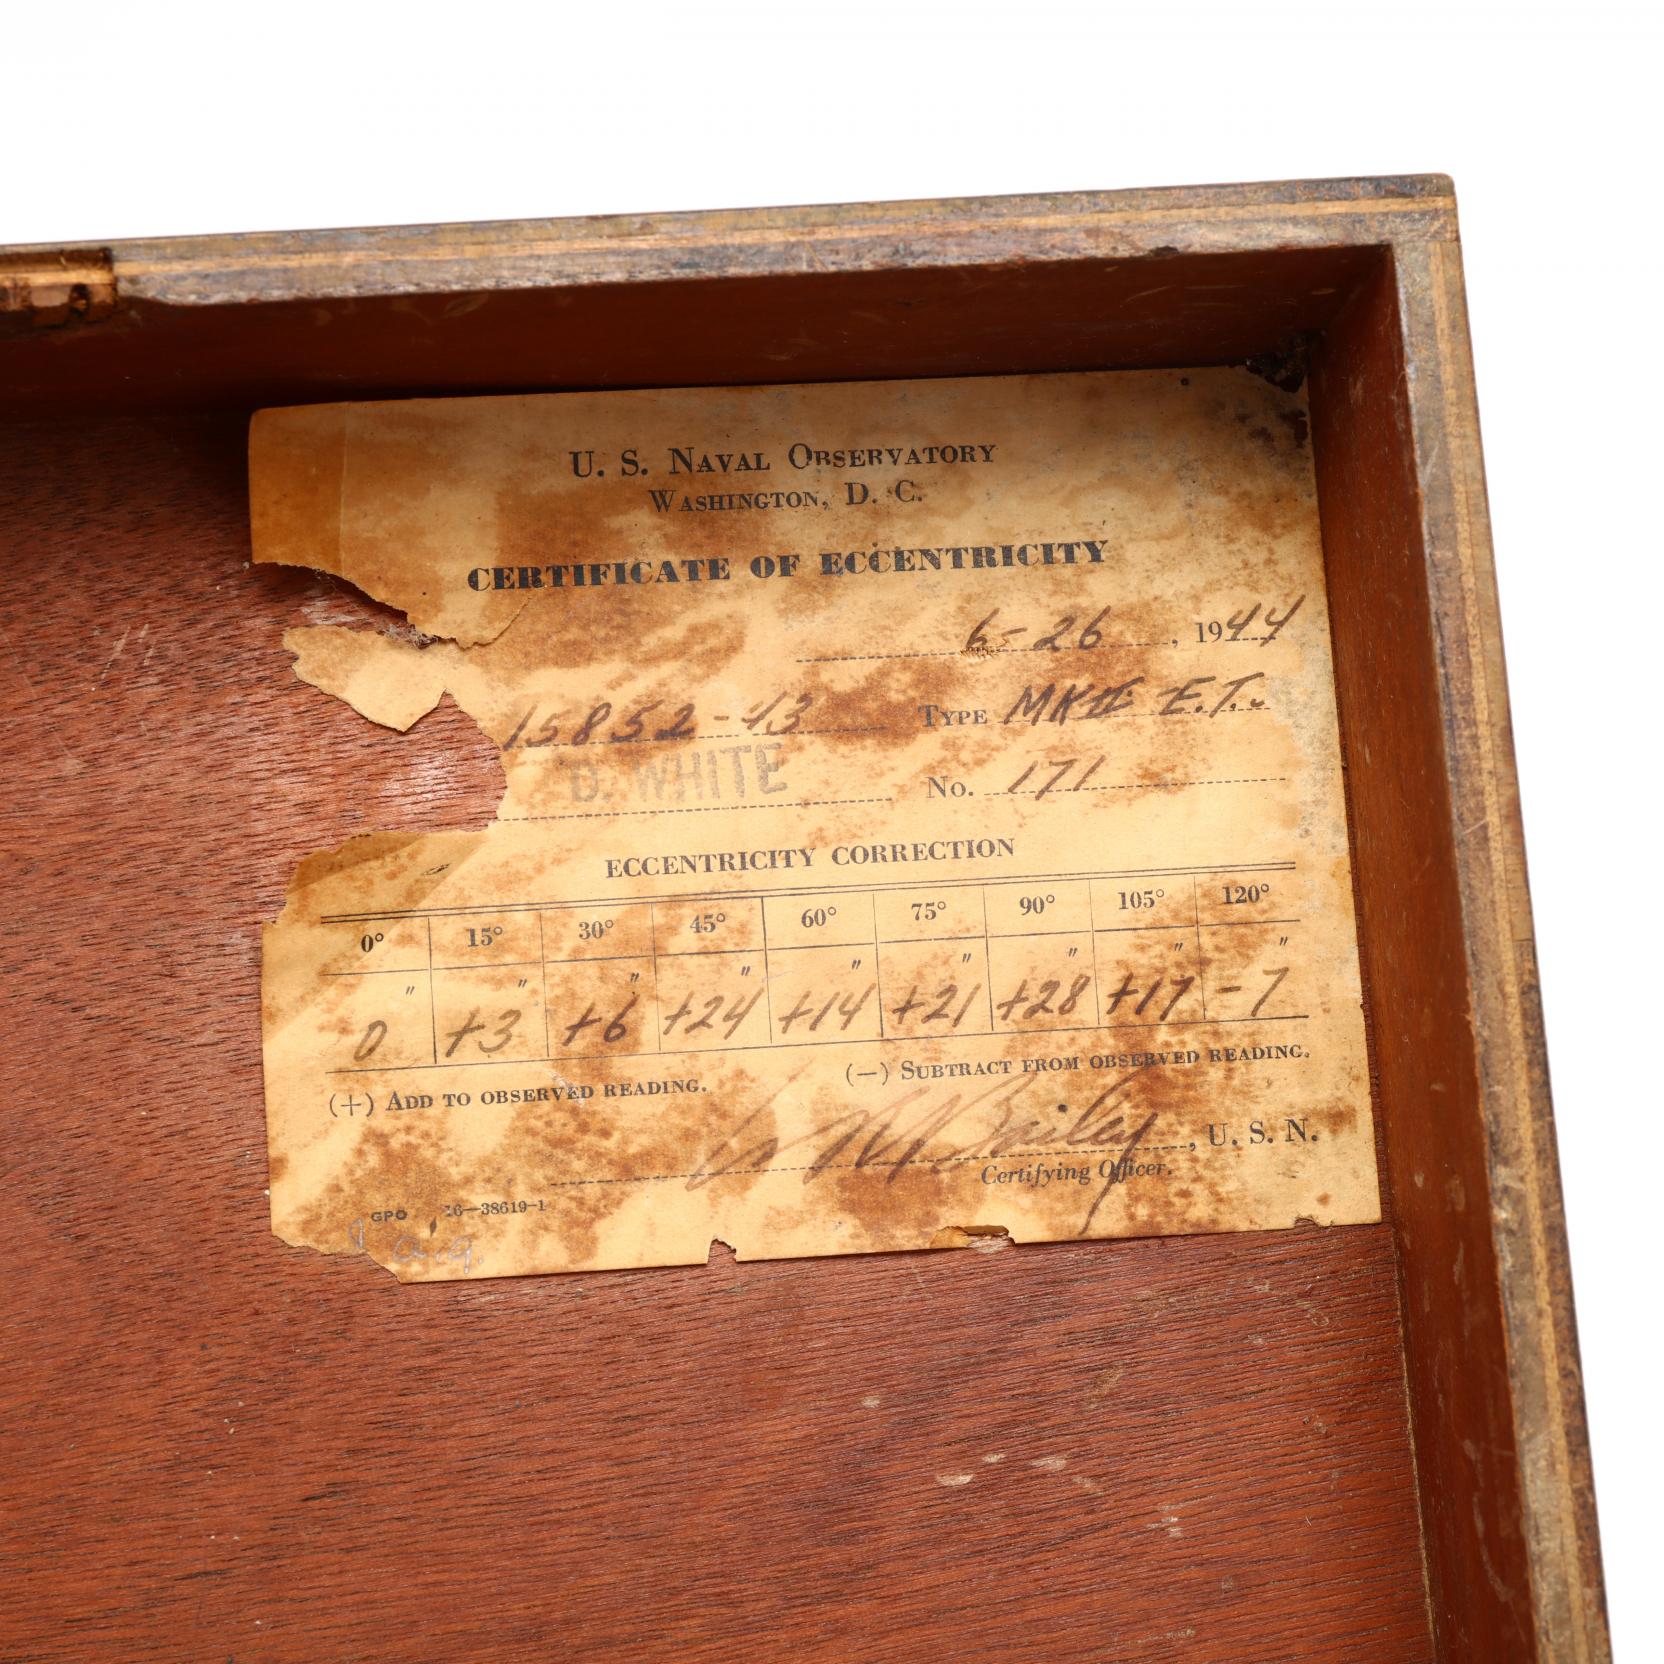 U. S. NAVAL OBSERVATORY
WASHINGTON, D. C.
CERTIFICATE OF ECCENTRICITY
6-26, 1944
15852-43 TYPE MK II E.T.
D. WHITE No. 171
ECCENTRICITY CORRECTION
0° 15° 30° 45° 60° 75° 90° 105° 120°
" " " " " " " " "
0 +3 +6 +24 +14 +21 +28 +17 -7
(+) ADD TO OBSERVED READING. (—) SUBTRACT FROM OBSERVED READING.
Bailey, U. S. N.
Certifying Officer.
GPO 16—38619-1